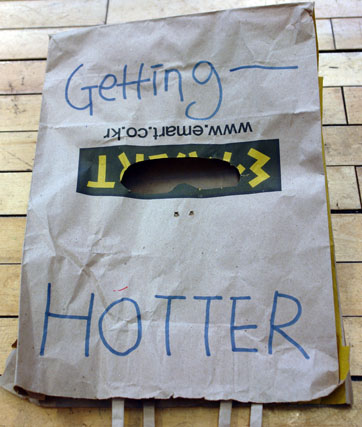 Getting —
www.emart.co.kr
E-MART
HOTTER